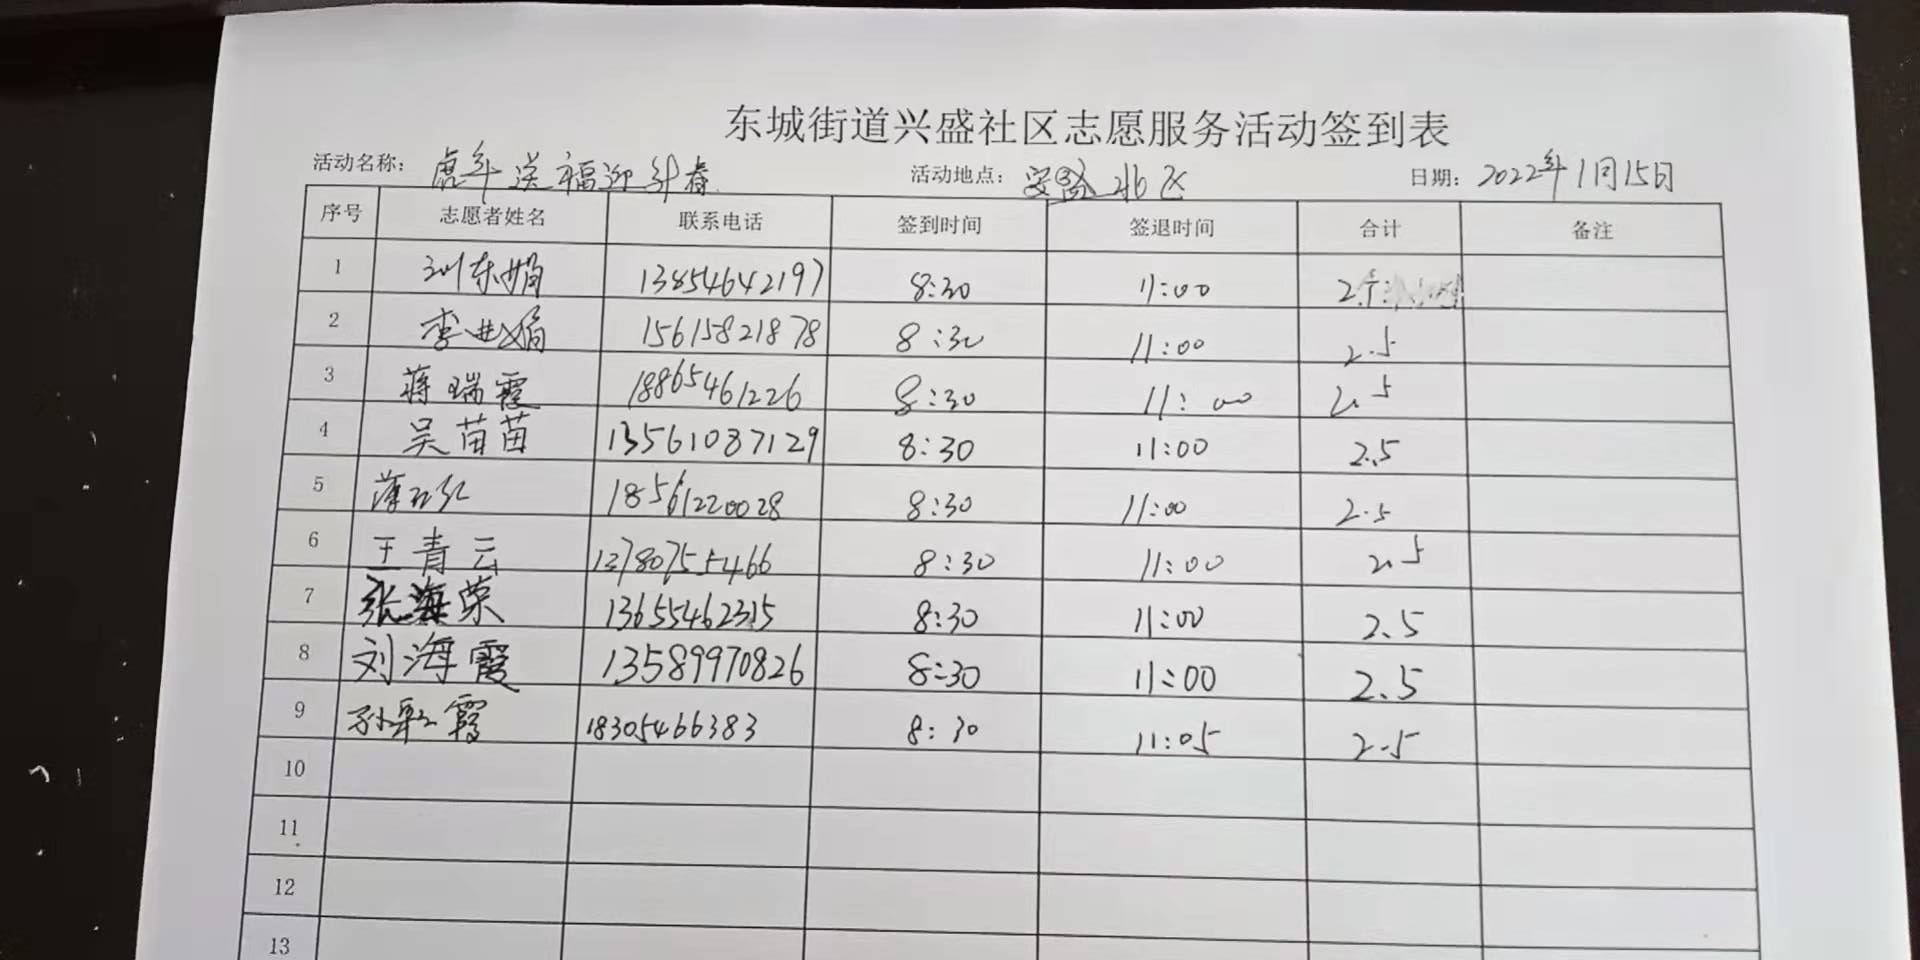 东城街道兴盛社区志愿服务活动签到表
活动名称: 虎年送福迎新春 活动地点: 安盛北区 日期: 2022年1月15日
序号 志愿者姓名 联系电话 签到时间 签退时间 合计 备注
1 刘东娟 13854642197 8:30 11:00
2 李 娟 15615821878 8:30 11:00 2.5
3 蒋瑞霞 18865461226 8:30 11:00 2.5
4 吴苗苗 13561087129 8:30 11:00 2.5
5 薄红 18561220028 8:30 11:00 2.5
6 王青云 13780755466 8:30 11:00 2.5
7 张海荣 13655462315 8:30 11:00 2.5
8 刘海霞 13589970826 8:30 11:00 2.5
9 孙 霞 18305466383 8:30 11:05 2.5
10
11
12
13